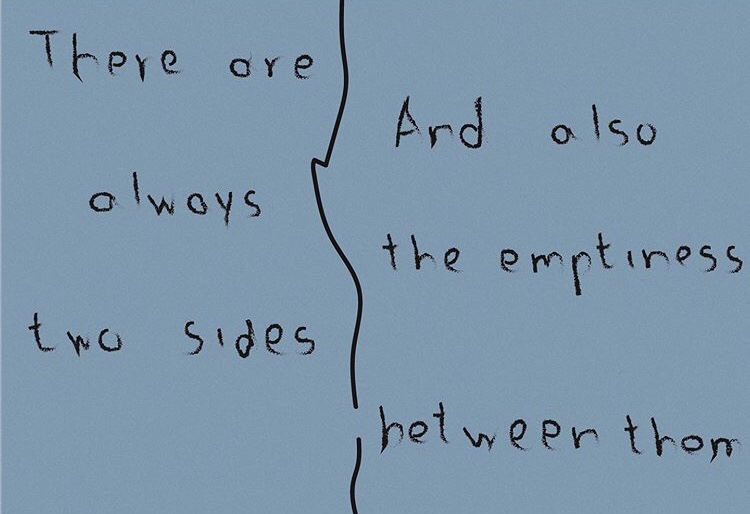 There are
always
two sides
And also
the emptiness
between them